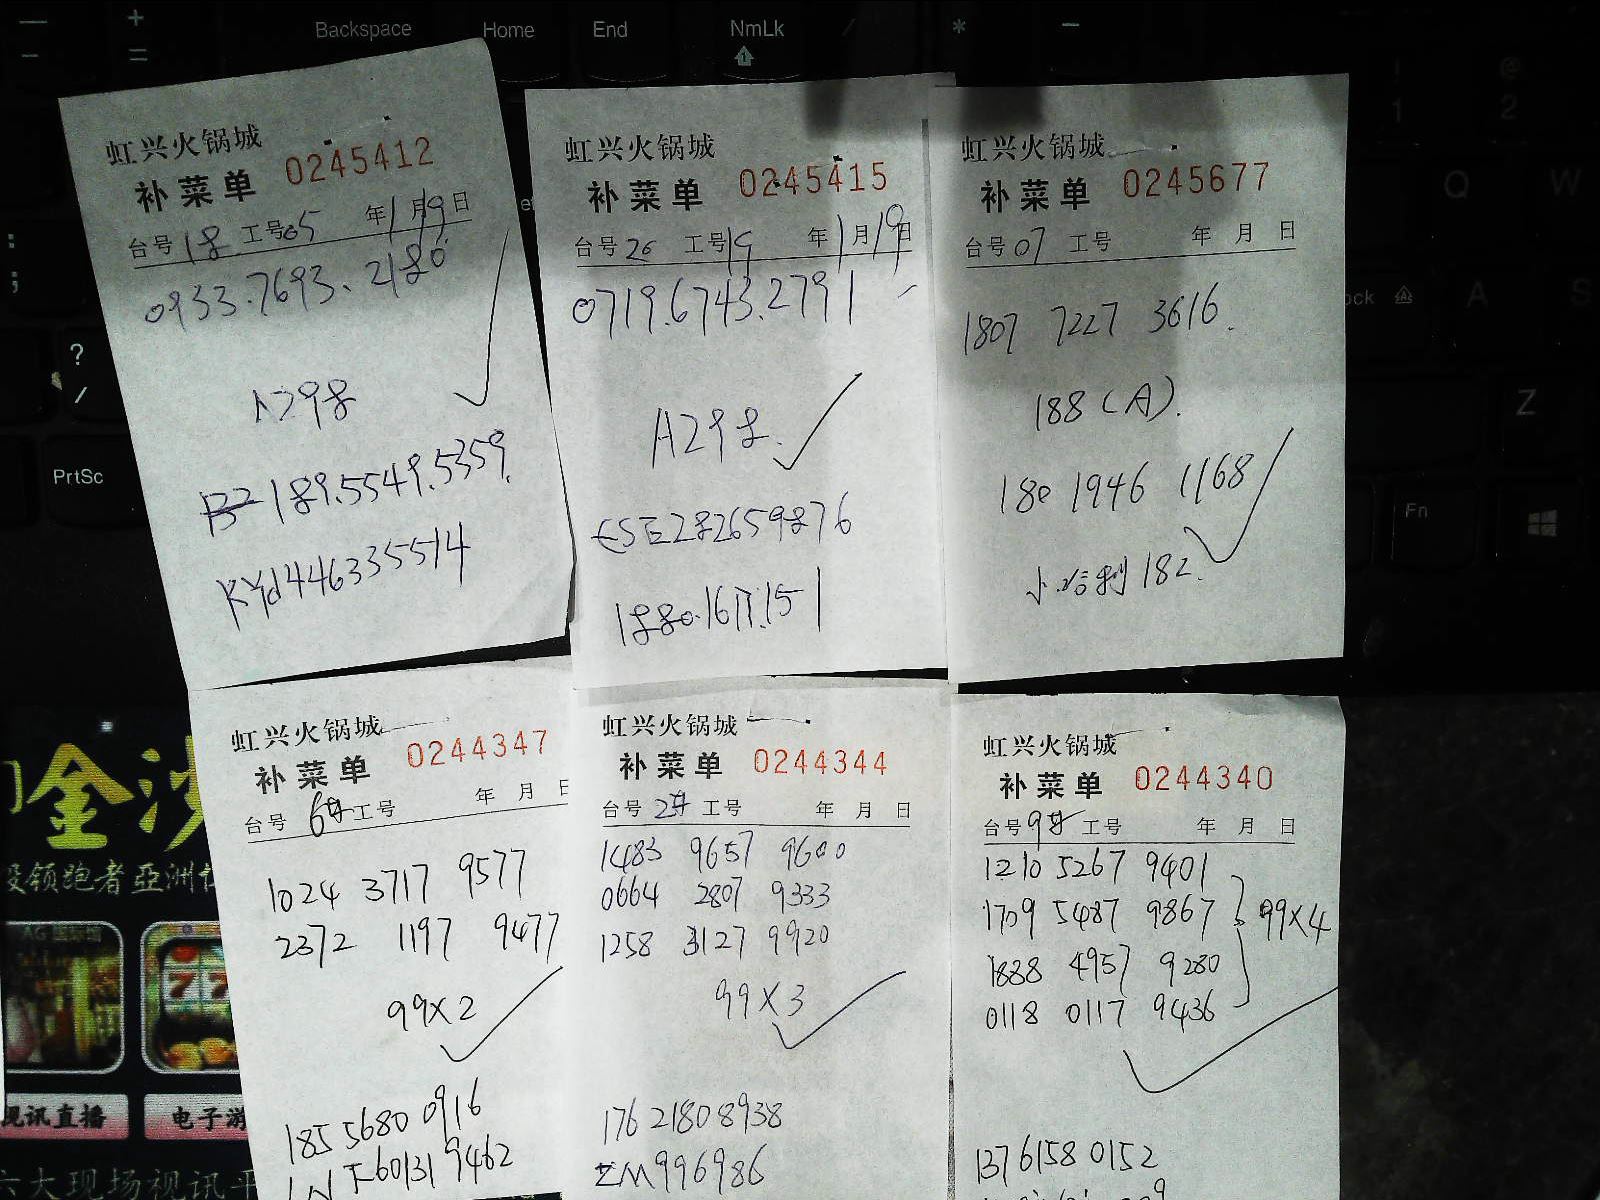 Backspace
Home
End
NmLk
PrtSc
Fn
虹兴火锅城
补菜单 0245412
台号 18 工号 05 年 1 月 19 日
0933.7693.2180
A298
189.5549.5359.
KYd446335514
虹兴火锅城
补菜单 0245415
台号 20 工号 19 年 1 月 19 日
0719.6743.2791
A298.
ESE282659876
1880.1611.151
虹兴火锅城
补菜单 0245677
台号 07 工号 年 月 日
1807 7227 3616.
188(A).
180 1946 1168
182.
虹兴火锅城
补菜单 0244347
台号 6# 工号 年 月 日
1024 3717 9577
2372 1197 9477
99X2
185 5680 0916
60131 9462
虹兴火锅城
补菜单 0244344
台号 2# 工号 年 月 日
1483 9657 9600
0664 2807 9333
1258 3127 9920
99X3
176 2180 8938
ZM996986
虹兴火锅城
补菜单 0244340
台号 9# 工号 年 月 日
1210 5267 9401
1709 5487 9867 99X4
1888 4957 9280
0118 0117 9436
137 6158 0152
金沙
领跑者亞洲
视讯直播
电子游
六大现场视讯平